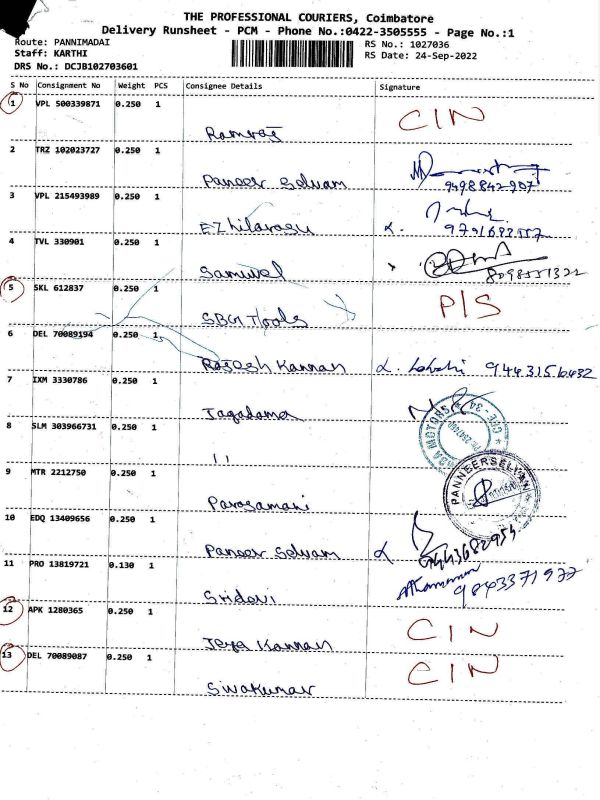 THE PROFESSIONAL COURIERS, Coimbatore
Delivery Runsheet - PCM - Phone No.:0422-3505555 - Page No.:1
Route: PANNIMADAI RS No.: 1027036
Staff: KARTHI RS Date: 24-Sep-2022
DRS No.: DCJB102703601
S No Consignment No Weight PCS Consignee Details Signature
1 VPL 500339871 0.250 1 CIN
Ramraj
2 TRZ 102023727 0.250 1
Paneer Selvam 9498842907
3 VPL 215493989 0.250 1
Ezhilarasu
4 TVL 330901 0.250 1
Samuvel 8098551322
5 SKL 612837 0.250 1 P/S
SBGI Tools
6 DEL 70089194 0.250 1
Rajesh Kannan
7 IXM 3330786 0.250 1
Jagadama
8 SLM 303966731 0.250 1 MOTORS
11
9 MTR 2212750 0.250 1 PANNEERSELVAM
10 EDQ 13409656 0.250 1
Paneer Selvam 9443682954
11 PRO 13819721 0.130 1 9843371977
Sridevi
12 APK 1280365 0.250 1 CIN
Jeya Kannan
13 DEL 70089087 0.250 1 CIN
Sivakumar